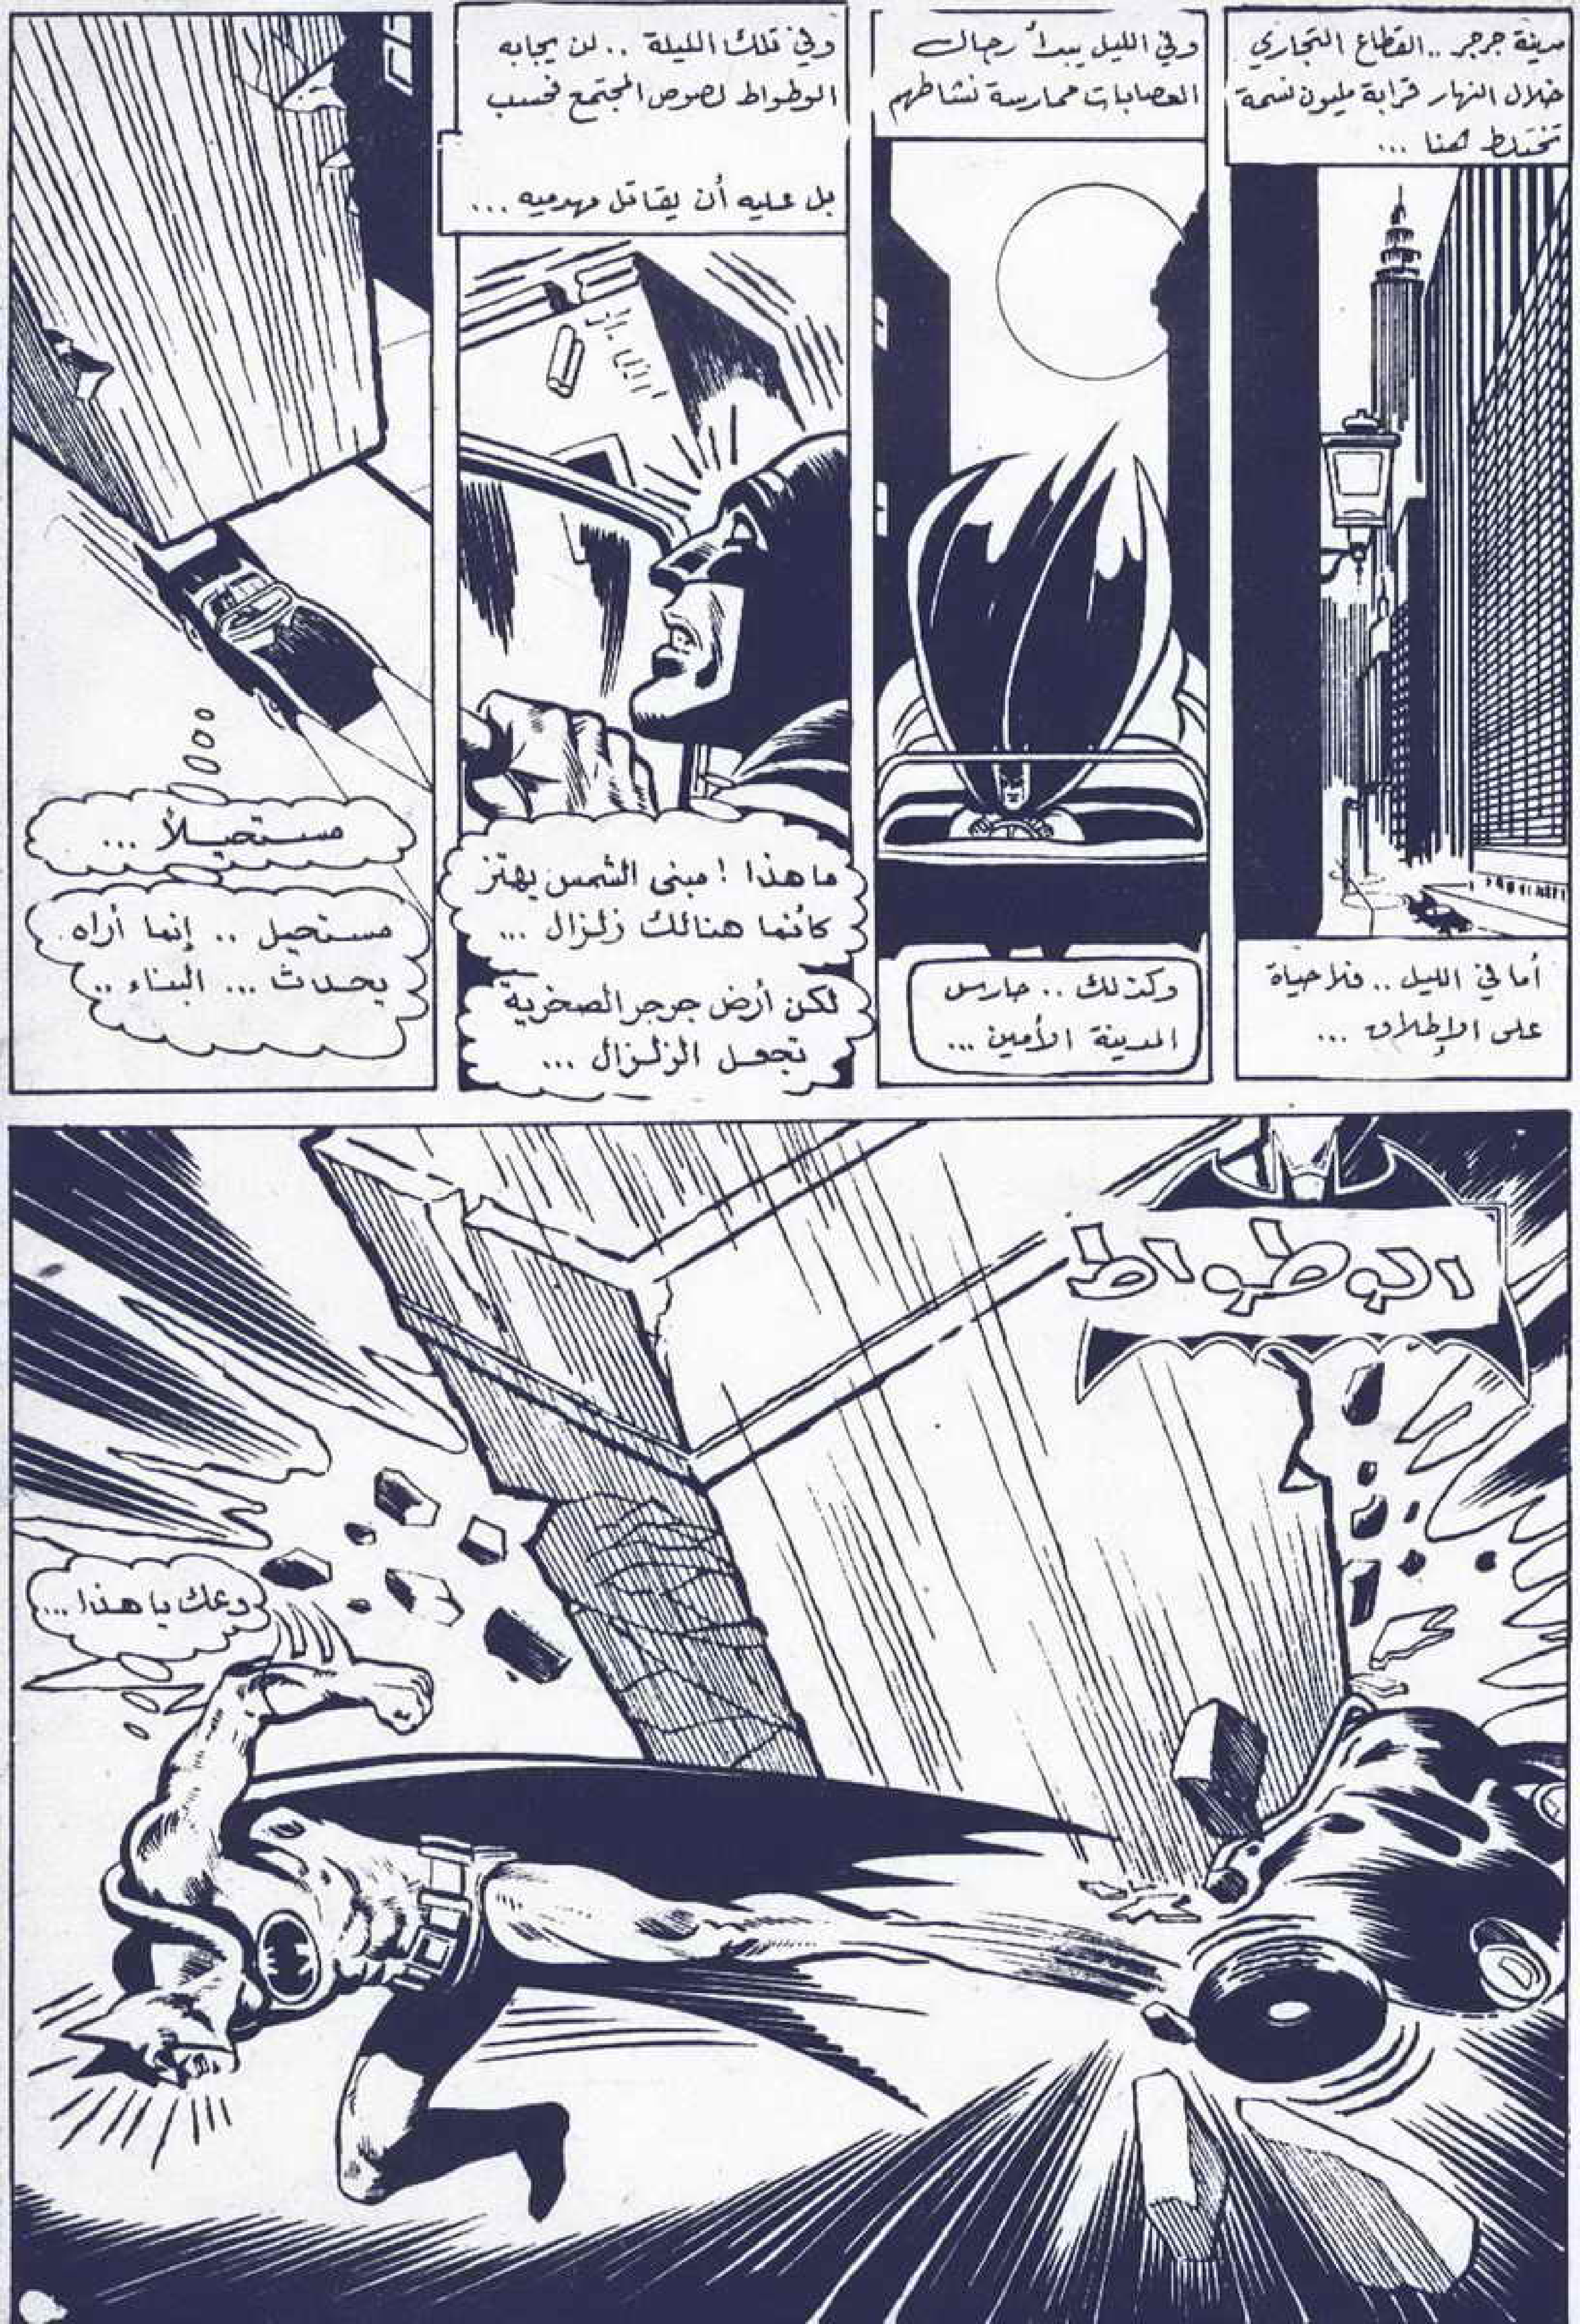 مدينة جرجر .. القطاع التجاري
خلال النهار قرابة مليون نسمة
تختلط هنا ...
أما في الليل .. فلا حياة
على الإطلاق ...
وفي الليل يبدأ رجال
العصابات ممارسة نشاطهم
وكذلك .. حارس
المدينة الأمين ...
وفي تلك الليلة .. لن يجابه
الوطواط لصوص المجتمع فحسب
بل عليه أن يقاتل مهدميه ...
ما هذا ! مبنى الشمس يهتز
كأنما هنالك زلزال ...
لكن أرض جرجر الصخرية
تجعل الزلزال ...
مستحيلاً ...
مستحيل .. إنما أراه
يحدث ... البناء ..
الوطواط
وعك يا هذا ...